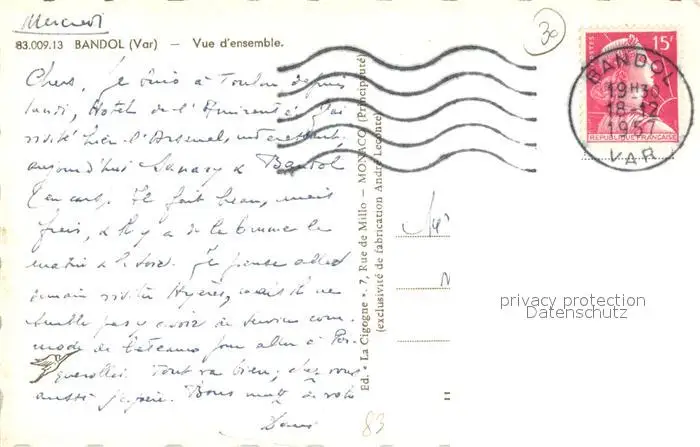 Mercredi
83.009.13 BANDOL (Var) — Vue d'ensemble.
30
Chers, Je suis à Toulon depuis
lundi, Hotel de l'Amirauté. J'ai
visité hier l'Arsenal,
aujourd'hui Sanary & Bandol
(en car). Il fait beau, mais
frais, & il y a de la brume le
matin & le soir. Je pense aller
demain visiter Hyères, mais il ne
semble pas y avoir de service com-
mode de bateaux pour aller à Por-
querolles. Tout va bien; chez vous
aussi j'espère. Bons
Ed. « La Cigogne », 7, Rue de Millo — MONACO (Principauté)
(exclusivité de fabrication André Leconte)
POSTES
15F
REPUBLIQUE FRANÇAISE
BANDOL
19H30
18-12
1957
VAR
privacy protection
Datenschutz
83